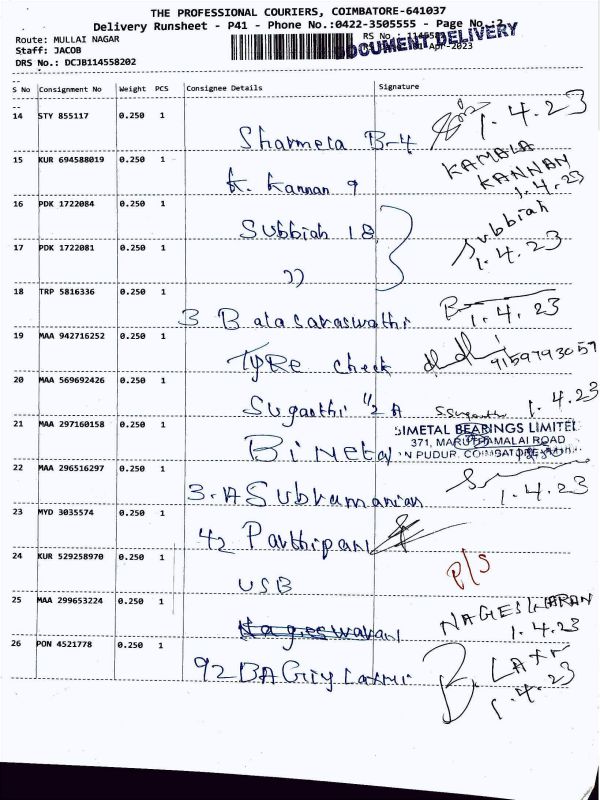 THE PROFESSIONAL COURIERS, COIMBATORE-641037
Delivery Runsheet - P41 - Phone No.:0422-3505555 - Page No.:2
Route: MULLAI NAGAR
Staff: JACOB
DRS No.: DCJB114558202
RS No
Apr-2023
DOCUMENT DELIVERY
S No Consignment No Weight PCS Consignee Details Signature
14 STY 855117 0.250 1
Sharmela B-4 1.4.23
15 KUR 694588019 0.250 1
K. Kannan 9 KAMALA
KANNAN
1.4.23
16 PDK 1722084 0.250 1
Subbiah 18 Subbiah
1.4.23
17 PDK 1722081 0.250 1
"
18 TRP 5816336 0.250 1
3 Balasaraswathi 1.4.23
19 MAA 942716252 0.250 1
Tyre check 9159793059
20 MAA 569692426 0.250 1
Suganthi 1/2 A S.Suganthi 1.4.23
21 MAA 297160158 0.250 1
Bimetal
BIMETAL BEARINGS LIMITED
371, MARUDAMALAI ROAD
22 MAA 296516297 0.250 1
3.A Subramanian 1.4.23
23 MYD 3035574 0.250 1
42 Parthipan
24 KUR 529258970 0.250 1
USB P/S
25 MAA 299653224 0.250 1
Nageswaran NAGESWARAN
1.4.23
26 PON 4521778 0.250 1
92 BA Giry Laxmi B. LAXMI
1.4.23